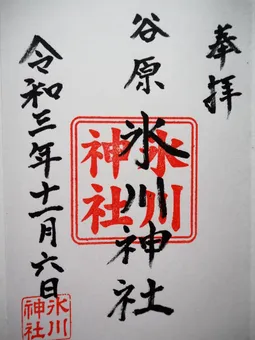 奉拝
谷原 氷川神社
氷川
神社
令和三年十一月六日
氷川
神社